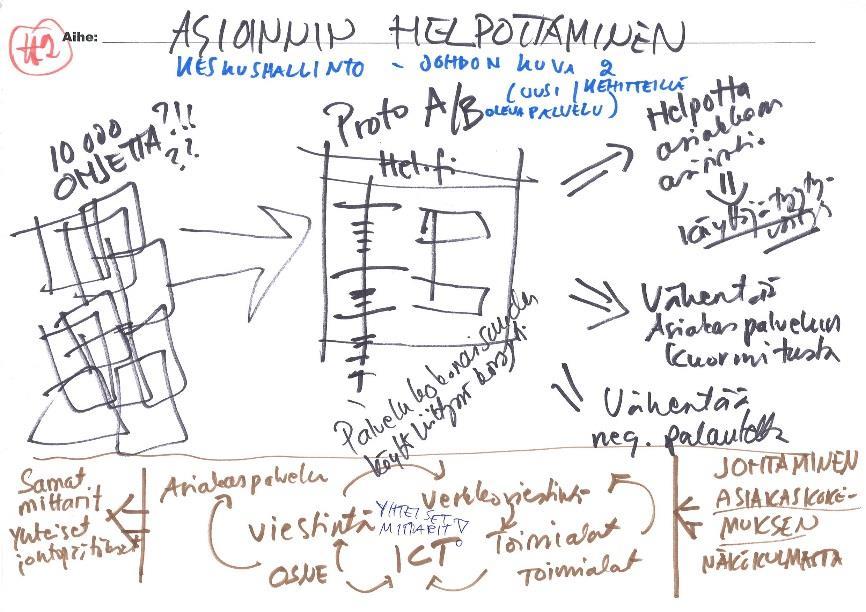 #2
Aihe:
ASIOINNIN HELPOTTAMINEN
KESKUSHALLINTO - JOHDON KUVA 2
(UUSI / KEHITTEILLÄ
OLEVA PALVELU)
10 000
OHJETTA?!!
??
Proto A/B
Hel.fi
Palvelukokonaisuuden
Helpotta
asiakkaan
asiointi.
Käyttäjätyyty-
väisyys
Vähentää
Asiakaspalvelun
kuormitusta
Vähentää
neg. palautetta
Samat
mittarit
Yhteiset
Asiakaspalvelu
viestintä
OSNE
YHTEISET
MITTARIT!
ICT
verkkoviestintä
Toimialat
Toimialat
JOHTAMINEN
ASIAKASKOKE-
MUKSEN
NÄKÖKULMASTA